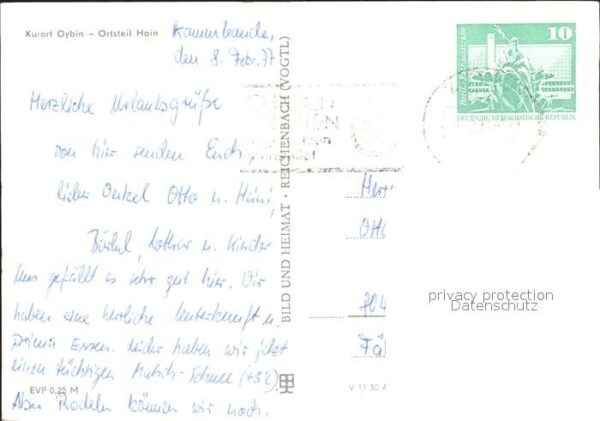 Kurort Oybin – Ortsteil Hain
den 8. Febr. 77
Herzliche Urlaubsgrüße
von hier senden Euch,
lieber Onkel Otto u. Heini,
Bärbel, Lothar u. Kinder
Uns gefällt es sehr gut hier. Wir
haben eine herrliche Unterkunft u.
prima Essen. Leider haben wir jetzt
einen tüchtigen Matsch-Schnee (+3°C).
Aber Rodeln können wir noch.
EVP 0,25 M
BILD UND HEIMAT · REICHENBACH (VOGTL)
V 11 50 A
10
DEUTSCHE DEMOKRATISCHE REPUBLIK
Herr
Otto
privacy protection
Datenschutz